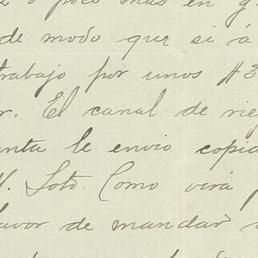 o poco mas en g
de modo que si á
trabajo por unos #3
r. El canal de rie
unta le envio copia
V. Soto. Como virá
favor de mandar